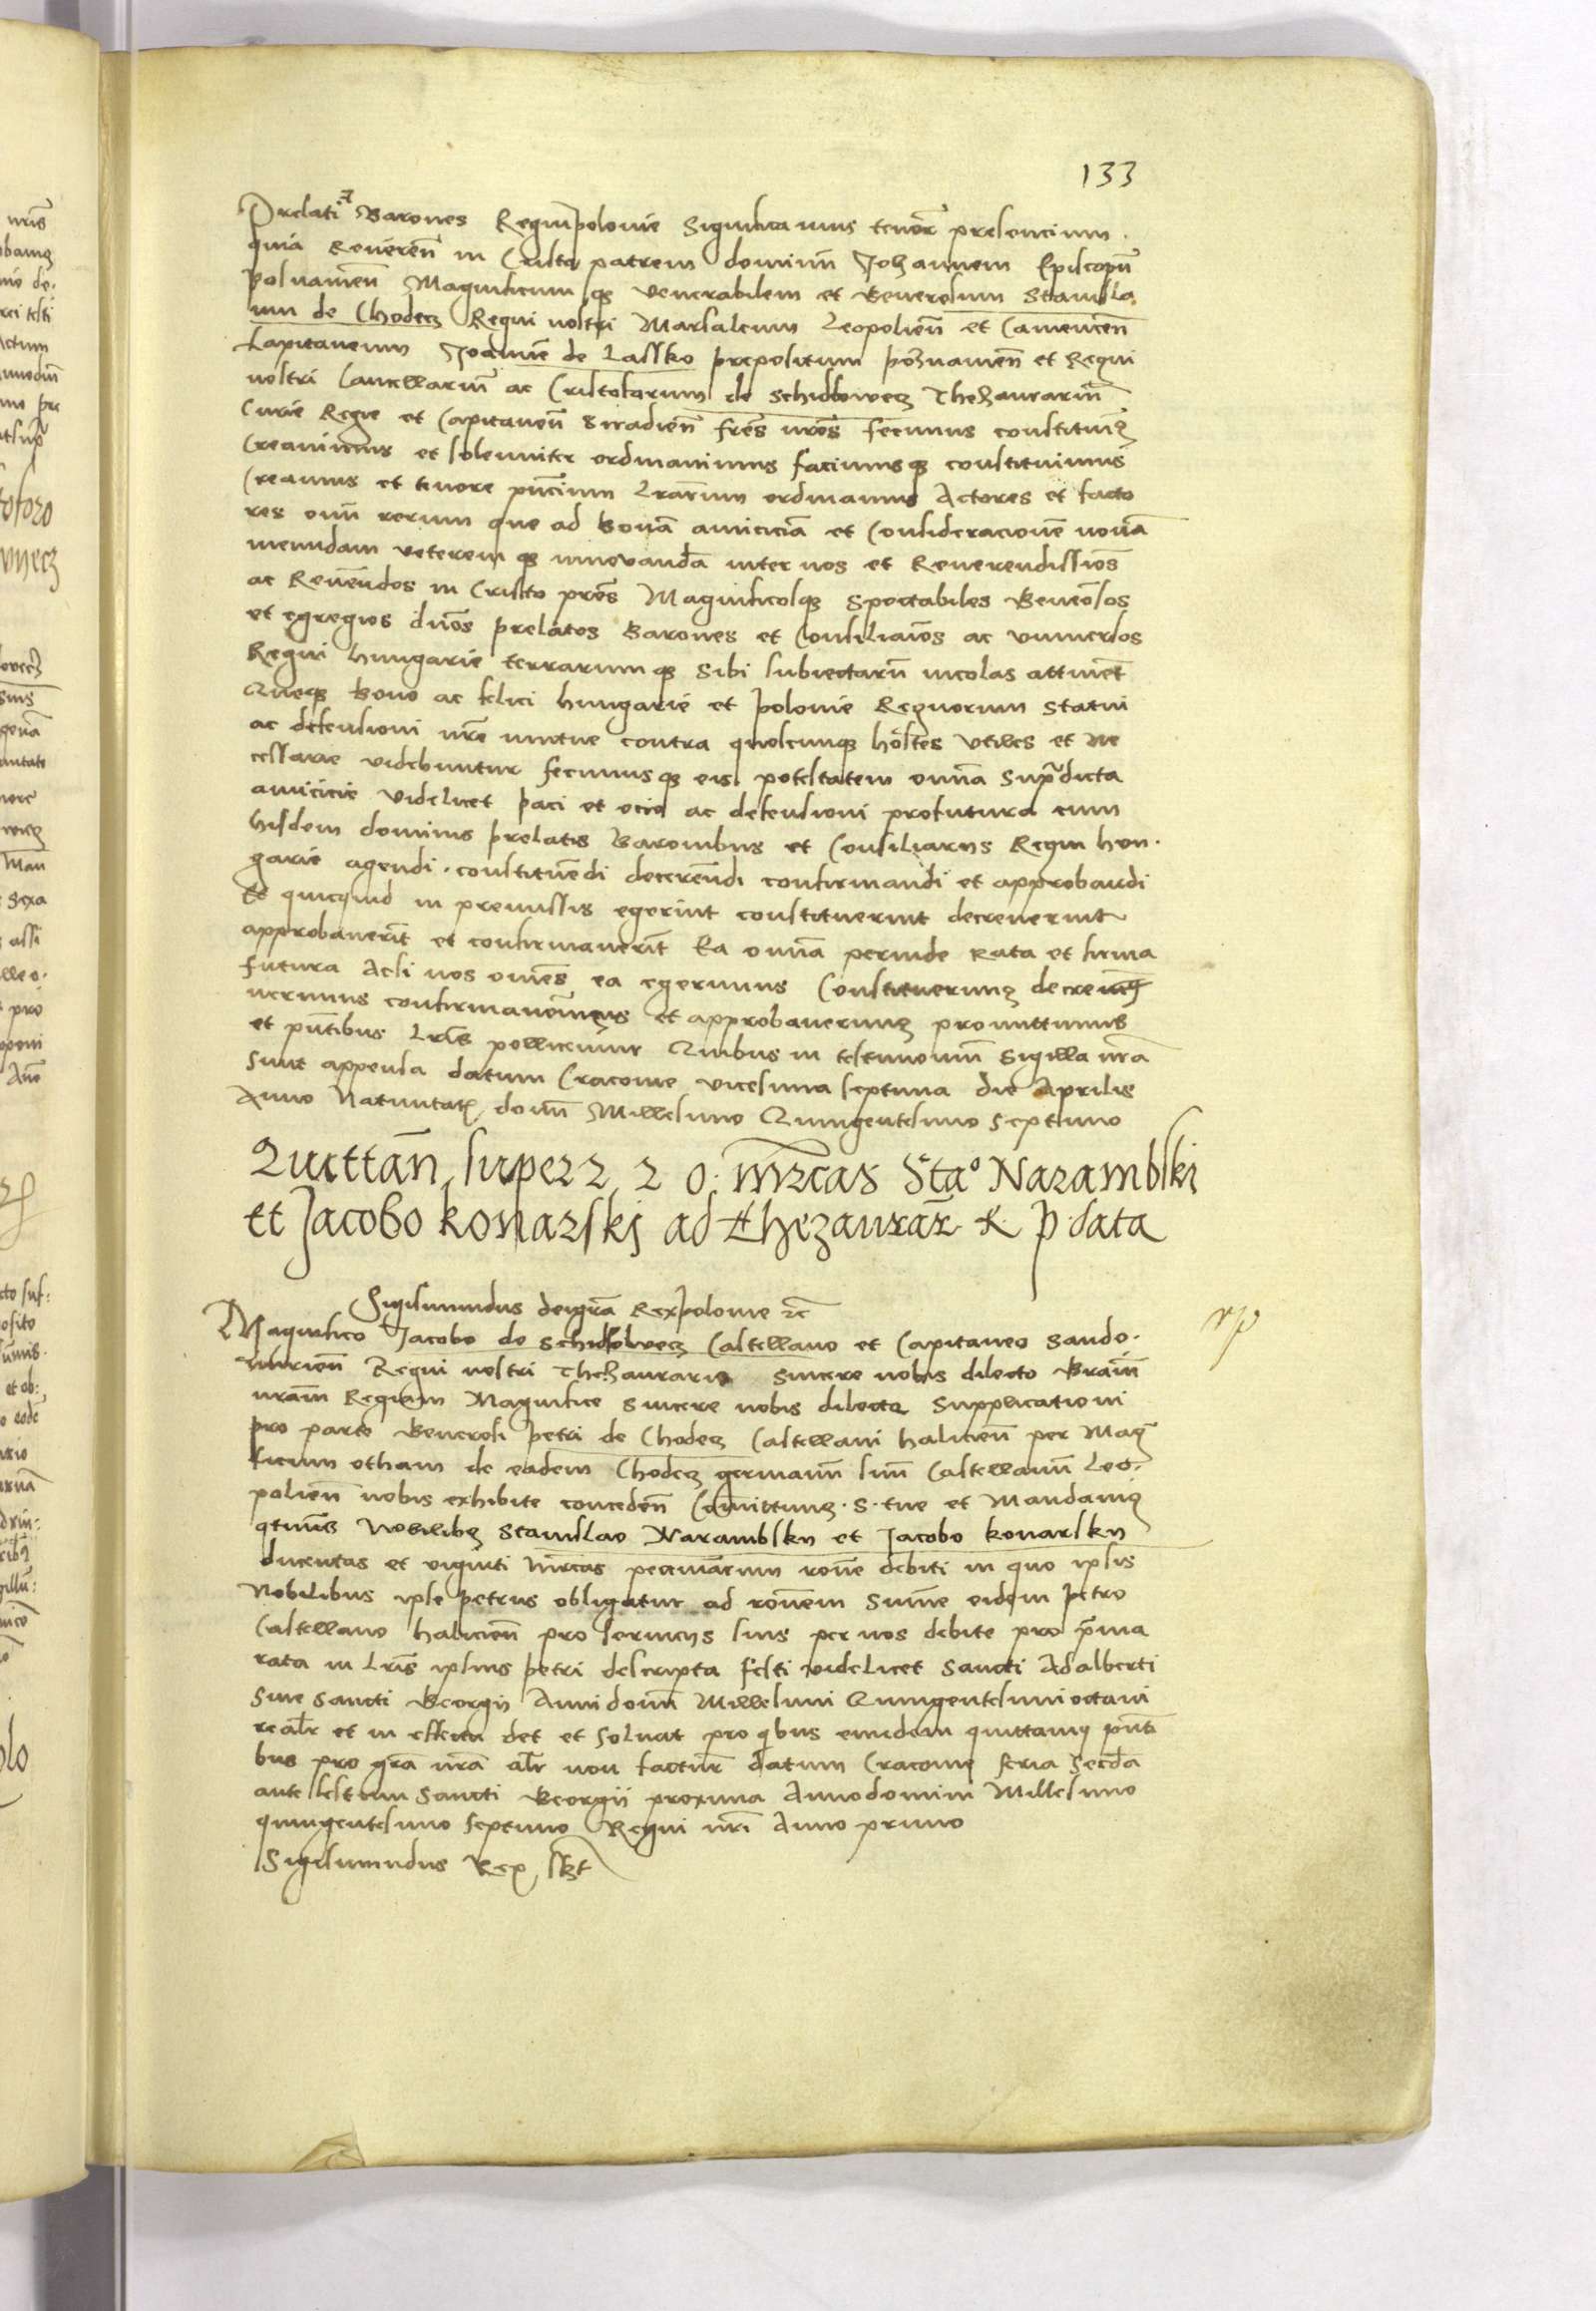 133
Prelati et Barones Regni polonie Significamus tenore presencium.
quia Reveren̄ in Cristo patrem dominū Johannem Episcopū
posnanien̄ Magnificum qȝ venerabilem et Generosum Stanisla
um de Chodecz Regni nostri Marsalcum Leopolien̄ et Camencen̄
Capitaneum Joannē de Lassko prepositum posnanien̄ et Regni
nostri Cancellariū ac Cristoforum de Schidlowecz Thezaurariū
Curie Regie et Capitaneū Siradien̄ fres nros fecimus constituimꝰ
Creavimus et solenniter ordinavimus facimusqȝ constituimus
Creamus et tenore pn̄cium Lrārum ordinamus Actores et facto
res oīm rerum que ad bonā amiciciā et Consideracionē novā
ineundam veteremqȝ innovandā inter nos et Reverendissiōs
ac Revēndos in Cristo pres Magnificosqȝ Spectabiles Generōsos
et egregios dnōs prelatos Barones et Consiliariōs ac universos
Regni Hungarie terrarumqȝ sibi subiectarū incolas attinent
Queqȝ bono ac felici Hungarie et polonie Regnorum statui
ac defensioni nrē mutue contra quoscunqȝ hostes utiles et ne
cessarie videbuntur fecimusqȝ eis potestatem omnia supradicta
amicicie videlicet paci et ocio ac defensioni profutura cum
hisdem dominis prelatis Baronibus et Consiliariis Regni hun.
garie agendi. constituēdi decerēndi confirmandi et approbandi
Et quicquid in premissis egerint constituerint decreverint
approbaverint et confirmaverint Ea omnia perinde rata et firma
futura Acsi nos omnes ea egerimus Constituerimꝰ decre
verimus confirmaverimus et approbaverimꝰ promittimus
et pn̄tibus Lrīs pollicemur Quibus in testimonium Sigilla nrā
sunt appensa datum Cracovie vicesima septima die Aprilis
Anno Nativitatis domī Millesimo Quingentesimo Septimo
Quittan̄ super 2 2 0. mrcas Stao Narambski
et Jacobo konarskj ad thezaurār R p data
Sigismundus dei grā Rex polonie rc̄
Magnifico Jacobo de Schidlowecz Castellano et Capitaneo Sando.
mirien̄ Regni nostri Thezaurario sincere nobis dilecto Grām
nram Regiam Magnifice sincere nobis dilecte Supplicationi
pro parte Generosi petri de Chodecz Castellani halicien̄ per Mag
ficum otham de eadem Chodecz germanū suū Castellanū Leo.
polien̄ nobis exhibite conceden̄ Comittimꝰ. S. tue et Mandamꝰ
qtinus Nobilibꝰ Stanislao Narambsky et Jacobo konarsky
ducentas et viginti mrcas pecuniarum rōne debiti in quo ipsis
Nobilibus ipse petrus obligatur ad rōnem Sume eidem petro
Castellano halicien̄ pro serviciis suis per nos debite pro prima
rata in Lrīs ipsius petri descripta festi videlicet Sancti Adalberti
sive Sancti Georgii Anni domī Millesimi Quingentesimi octavi
realr et in effectu det et solvat pro qbus eundem quittamꝰ pn̄ti
bus pro grā nrā alr non factur̄ datum Cracovie feria secda
ante festum Sancti Georgii proxima Anno domini Millesimo
quingentesimo septimo Regni nrī Anno primo
Sigismundus Rex sszt